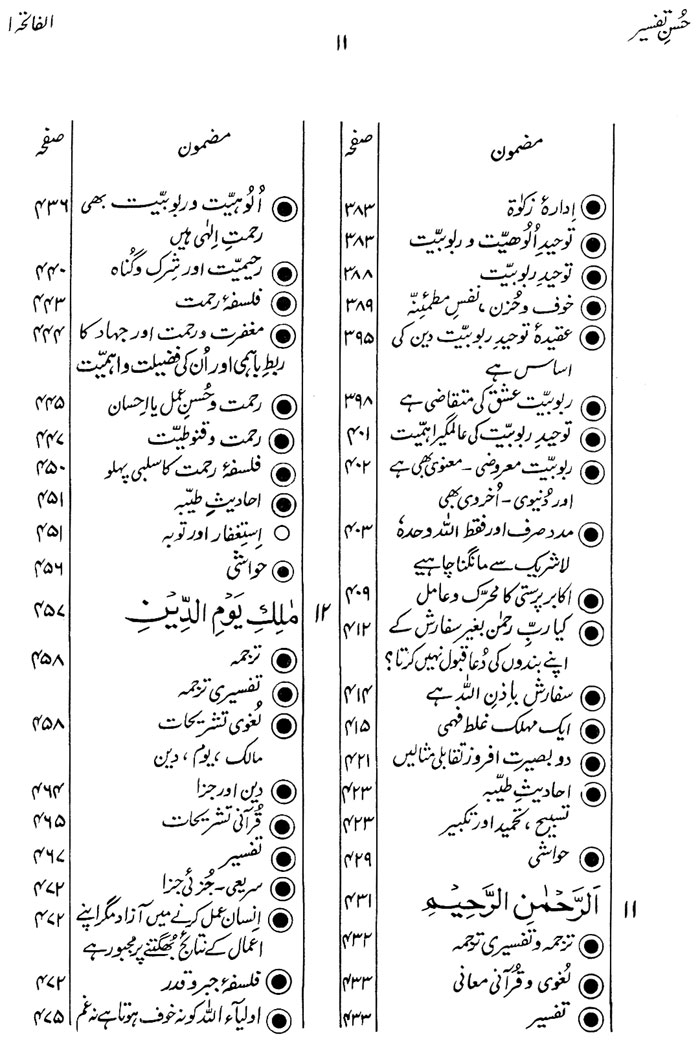 حُسنِ تفسیر
۱۱
الفاتحہ ۱
مضمون صفحہ
اِدارۂ زکوٰۃ ۳۸۳
توحیدِ اُلُوھیّت و ربوبیّت ۳۸۳
توحیدِ ربوبیّت ۳۸۸
خوف و حُزن، نفسِ مطمئِنّہ ۳۸۹
عقیدۂ توحیدِ ربوبیّت دین کی ۳۹۵
اساس ہے
ربوبیّت عشق کی متقاضی ہے ۳۹۸
توحیدِ ربوبیّت کی عالمگیر اہمیّت ۴۰۱
ربوبیّت معروضی - معنوی بھی ہے ۴۰۲
اور دُنیوی - اُخروی بھی
مدد صرف اور فقط اللہ وحدہٗ ۴۰۳
لاشریک سے مانگنا چاہیے
اکابر پرستی کا محرّک و عامل ۴۰۹
کیا ربِّ رحمٰن بغیر سفارش کے ۴۱۲
اپنے بندوں کی دُعا قبول نہیں کرتا؟
سفارش باِذنِ اللہ ہے ۴۱۴
ایک مہلک غلط فہمی ۴۱۵
دو بصیرت افروز تقابلی مثالیں ۴۲۱
احادیثِ طیّبہ ۴۲۳
تسبیح، تحمید اور تکبیر ۴۲۳
حواشی ۴۲۹
۱۱ اَلرَّحْمٰنِ الرَّحِیْمِ ۴۳۱
ترجمہ و تفسیری ترجمہ ۴۳۲
لُغوی و قُرآنی معانی ۴۳۳
تفسیر ۴۳۳
مضمون صفحہ
اُلُوہیّت و ربوبیّت بھی ۴۳۶
رحمتِ اِلٰہی ہیں
رحیمیّت اور شِرک و گُناہ ۴۴۰
فلسفۂ رحمت ۴۴۳
مغفرت و رحمت اور جہاد کا ۴۴۴
ربطِ باہمی اور اُن کی فضیلت و اہمیّت
رحمت و حُسنِ عمل یا اِحسان ۴۴۵
رحمت و قنوطیّت ۴۴۷
فلسفۂ رحمت کا سلبی پہلو ۴۵۰
احادیثِ طیّبہ ۴۵۱
اِستِغفار اور توبہ ۴۵۱
حواشی ۴۵۶
۱۲ مٰلِکِ یَوْمِ الدِّیْنِ ۴۵۷
ترجمہ ۴۵۸
تفسیری ترجمہ
لُغوی تشریحات ۴۵۸
مالک، یوم، دین
دین اور جزا ۴۶۴
قُرآنی تشریحات ۴۶۵
تفسیر ۴۶۷
سریعی - جُزئی جزا ۴۷۲
اِنسان عمل کرنے میں آزاد مگر اپنے ۴۷۲
اعمال کے نتائج بُھگتنے پر مجبور ہے
فلسفۂ جبر و قدر ۴۷۲
اولیآء اللہ کو نہ خوف ہوتا ہے نہ غم ۴۷۵